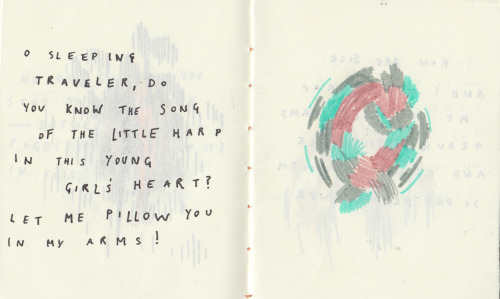 O SLEEPING
TRAVELER, DO
YOU KNOW THE SONG
OF THE LITTLE HARP
IN THIS YOUNG
GIRL'S HEART?
LET ME PILLOW YOU
IN MY ARMS!